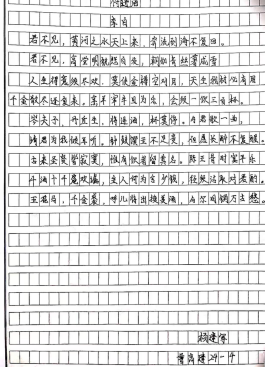 将进酒
李白
君不见，黄河之水天上来，奔流到海不复回。
君不见，高堂明镜悲白发，朝如青丝暮成雪
人生得意须尽欢，莫使金樽空对月，天生我材必有用
千金散尽还复来，烹羊宰牛且为乐，会须一饮三百杯。
岑夫子，丹丘生，将进酒，杯莫停。与君歌一曲，
请君为我倾耳听，钟鼓馔玉不足贵，但愿长醉不复醒。
古来圣贤皆寂寞，惟有饮者留其名。陈王昔时宴平乐
斗酒十千恣欢谑，主人何为言少钱，径须沽取对君酌。
五花马，千金裘，呼儿将出换美酒，与尔同销万古愁。